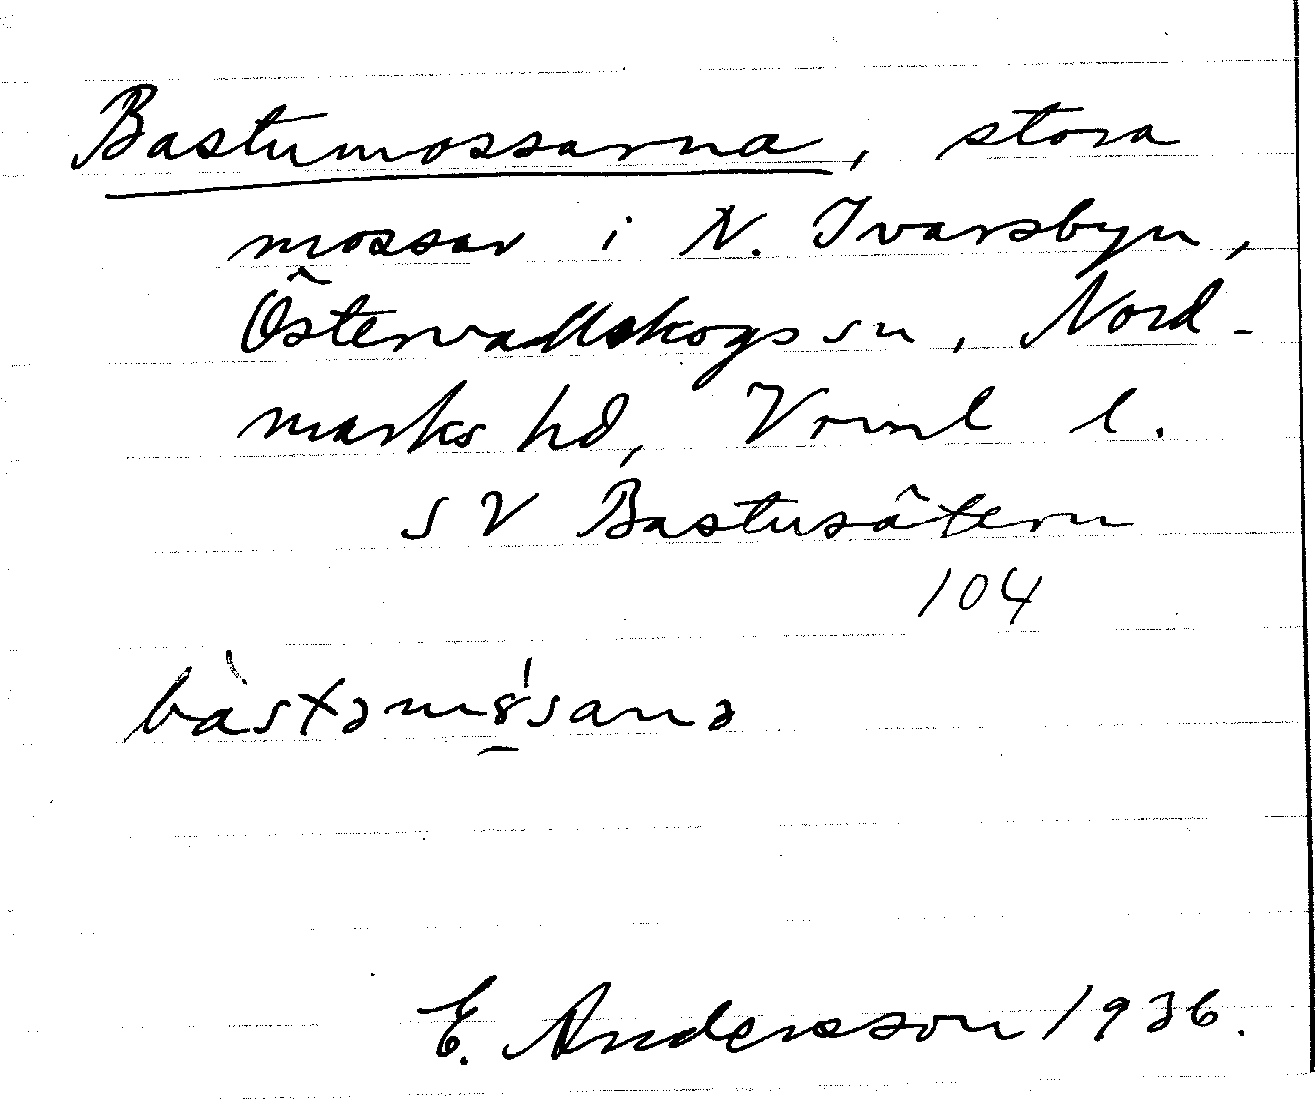 Bastumossarna, stora
mossar i N. Ivarsbyn,
Östervallskogs sn, Nord-
marks hd, Vrml l.
SV Bastusätern
104
bàstəmɞ̠ˈsanə
E. Andersson 1936.